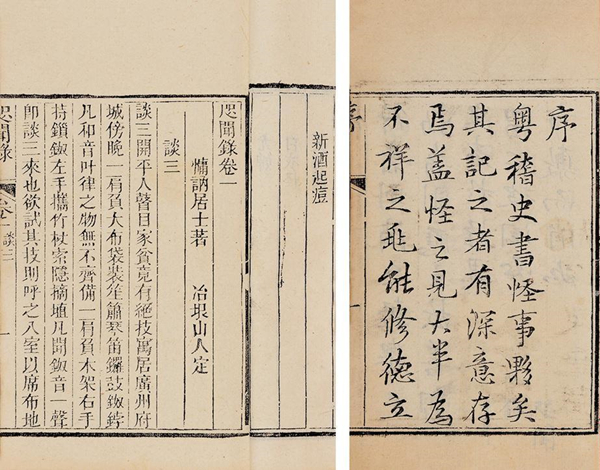 序
粵稽史書怪事夥矣
其記之者有深意存
焉蓋怪之見大半為
不祥之兆能修德立
新酒起痘
咫聞錄卷一
慵訥居士著 冶垠山人定
談三
談三開平人瞽目家貧竟有絕技寓居廣州府
城傍晚一肩負大布袋裝笙簫琴笛鑼鼓鈸
凡和音叶律之物無不齊備一肩負木架右手
持鎖鈸左手攜竹杖索隱摘埴凡聞鈸音一聲
即談三來也欲試其技則呼之入室以席布地
咫聞錄 卷一 談三 一